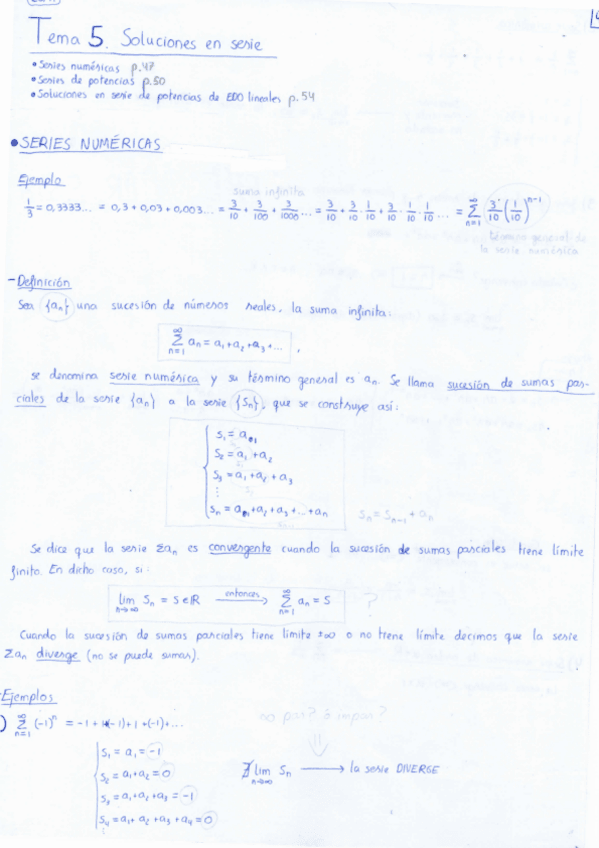 Tema 5. Soluciones en serie
• Series numéricas p.47
• Series de potencias p.50
• Soluciones en serie de potencias de EDO lineales p.54
• SERIES NUMÉRICAS
Ejemplo
suma infinita
1/3 = 0,3333... = 0,3 + 0,03 + 0,003... = 3/10 + 3/100 + 3/1000 ... = 3/10 + 3/10 · 1/10 + 3/10 · 1/10 · 1/10 ... = ∑_{n=1}^{∞} 3/10 (1/10)^{n-1}
término general de
la serie numérica
- Definición
Sea {an} una sucesión de números reales, la suma infinita:
∑_{n=1}^{∞} an = a1 + a2 + a3 + ... ,
se denomina serie numérica y su término general es an. Se llama sucesión de sumas par-
ciales de la serie {an} a la serie {Sn}, que se construye así:
S1 = a1
S2 = a1 + a2
S3 = a1 + a2 + a3
⋮
Sn = a1 + a2 + a3 + ... + an
Sn = Sn-1 + an
Se dice que la serie Σan es convergente cuando la sucesión de sumas parciales tiene límite
finito. En dicho caso, si:
lim_{n→∞} Sn = S ∈ ℝ entonces → ∑_{n=1}^{∞} an = S ?
Cuando la sucesión de sumas parciales tiene límite ±∞ o no tiene límite decimos que la serie
Σan diverge (no se puede sumar).
Ejemplos
) ∑_{n=1}^{∞} (-1)^n = -1 + 1 + (-1) + 1 + (-1) + ...
∞ par? ó impar?
⇓
S1 = a1 = -1
S2 = a1 + a2 = 0
S3 = a1 + a2 + a3 = -1
S4 = a1 + a2 + a3 + a4 = 0
⋮
∄ lim_{n→∞} Sn → la serie DIVERGE